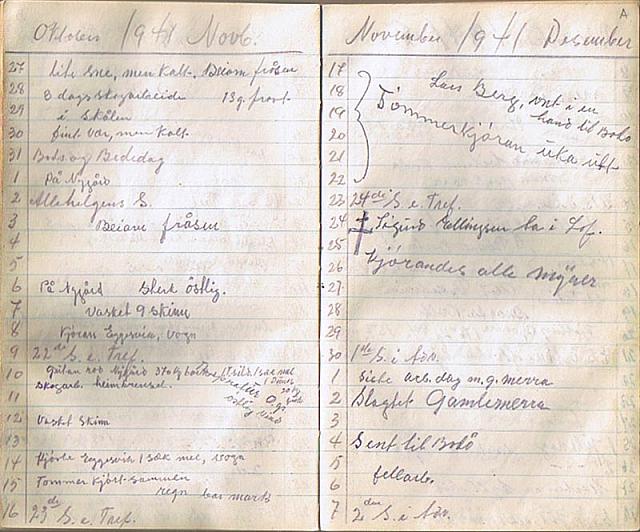 Oktober 1941 Novb.
27 lite sne, men kalt. Beiarn fråsen
28 3 dags skogarbeide 13 g. frost
29 i Skålen
30 fint vær, men kalt
31 Bods og Bededag
1 På Nygård
2 Allehelgens S.
3 Beiarn fråsen
4
5
6 På Nygård Sterk östlig.
7 Vasket 9 skinn
8 Kjörar Eggesvik, vogn
9 22de S. e. Tref.
10 Nygård 370 kg
11 Skogarb. heimbrensel.
12 Vasket skinn
13
14 Kjörte Eggesvik 1 sæk mel, vogn
15 Tommer kjört sammen
regn bar mark
16 23de S. e. Tref.
November 1941 Desember
A
17
18 Lars Berg, vont i en
19 hand til Bodö
20 Tömmerkjöran uka ut
21
22
23 24de S. e. Tref.
24 Sigurd Ellingsen ba i Lof.
25
26 Kjörandes alle myrer
27
28
29
30 1ste S. i Adv.
1 siste arb. dag m. g. merra
2 Slagtet Gamlemerra
3
4 Sent til Bodö
5
6 fellarb.
7 2den S. i Adv.